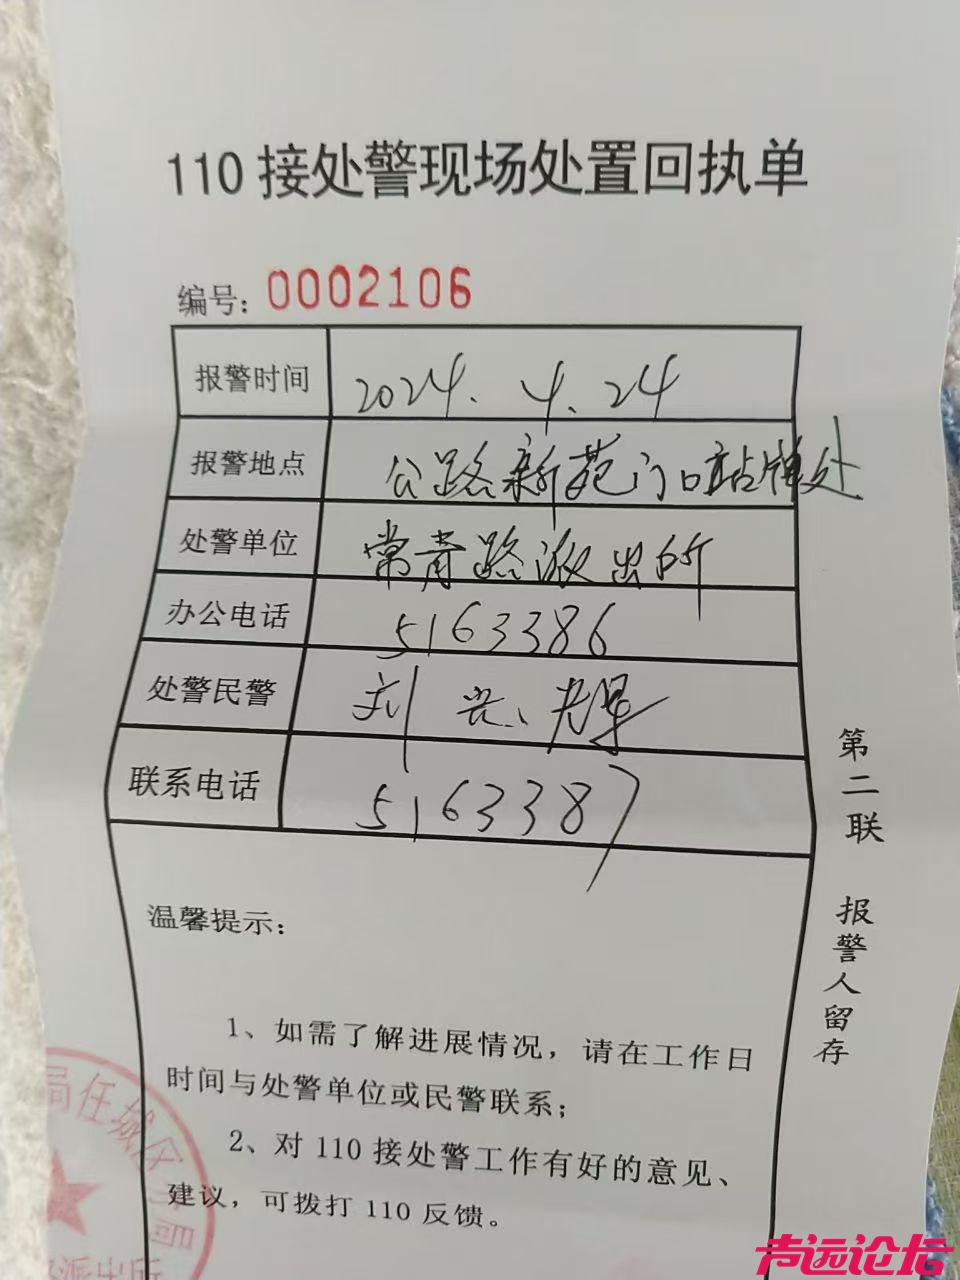 110 接处警现场处置回执单
编号: 0002106
报警时间 2024.4.24
报警地点 公路新苑门口站牌处
处警单位 常青路派出所
办公电话 5163386
处警民警 刘兴、
联系电话 5163387
温馨提示:
1、如需了解进展情况，请在工作日
时间与处警单位或民警联系;
2、对 110 接处警工作有好的意见、
建议，可拨打 110 反馈。
第二联 报警人留存
局任城区分局
派出所
声远论坛